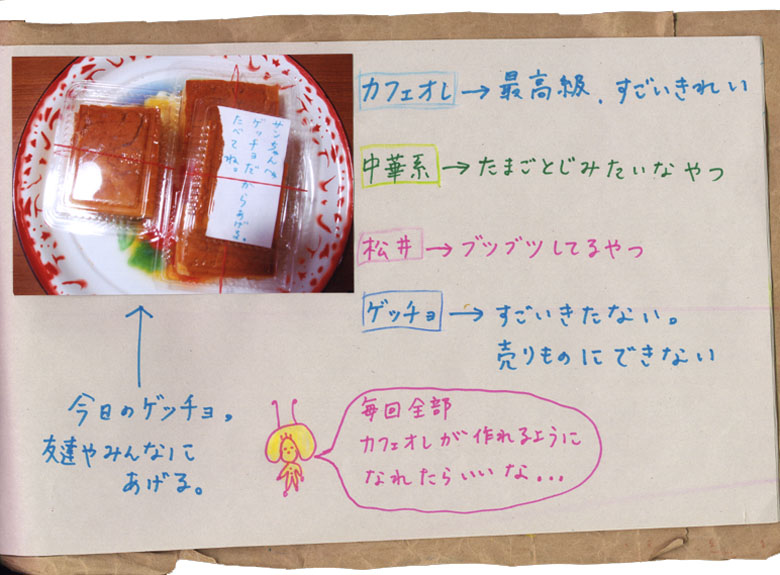 サンちゃんへ
ゲッチョだからあげる。
たべてね。
カフェオレ → 最高級、すごいきれい
中華系 → たまごとじみたいなやつ
松井 → ブツブツしてるやつ
ゲッチョ → すごいきたない。
売りものにできない
今日のゲッチョ。
友達やみんなに
あげる。
毎回全部
カフェオレが作れるように
なれたらいいな...